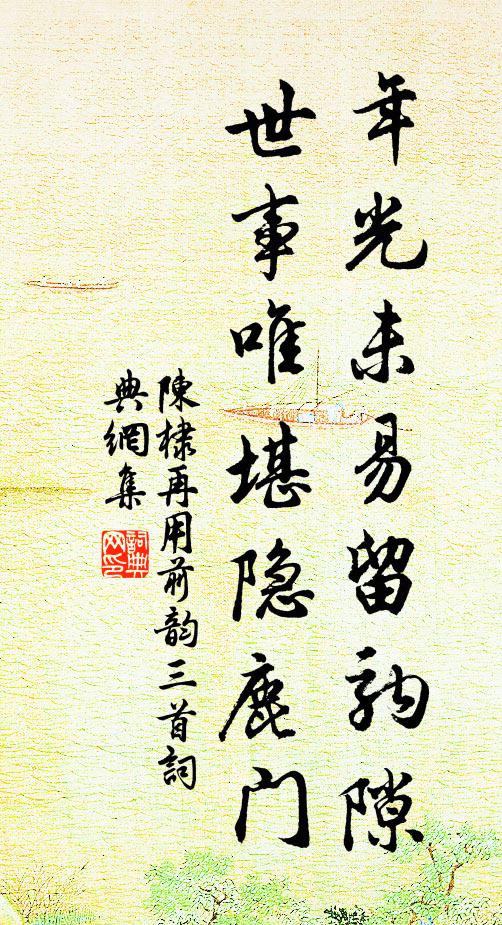 年光未易留駒隙
世事唯堪隐鹿門
陳棣再用前韵三首詞
典網集
詞典
网印